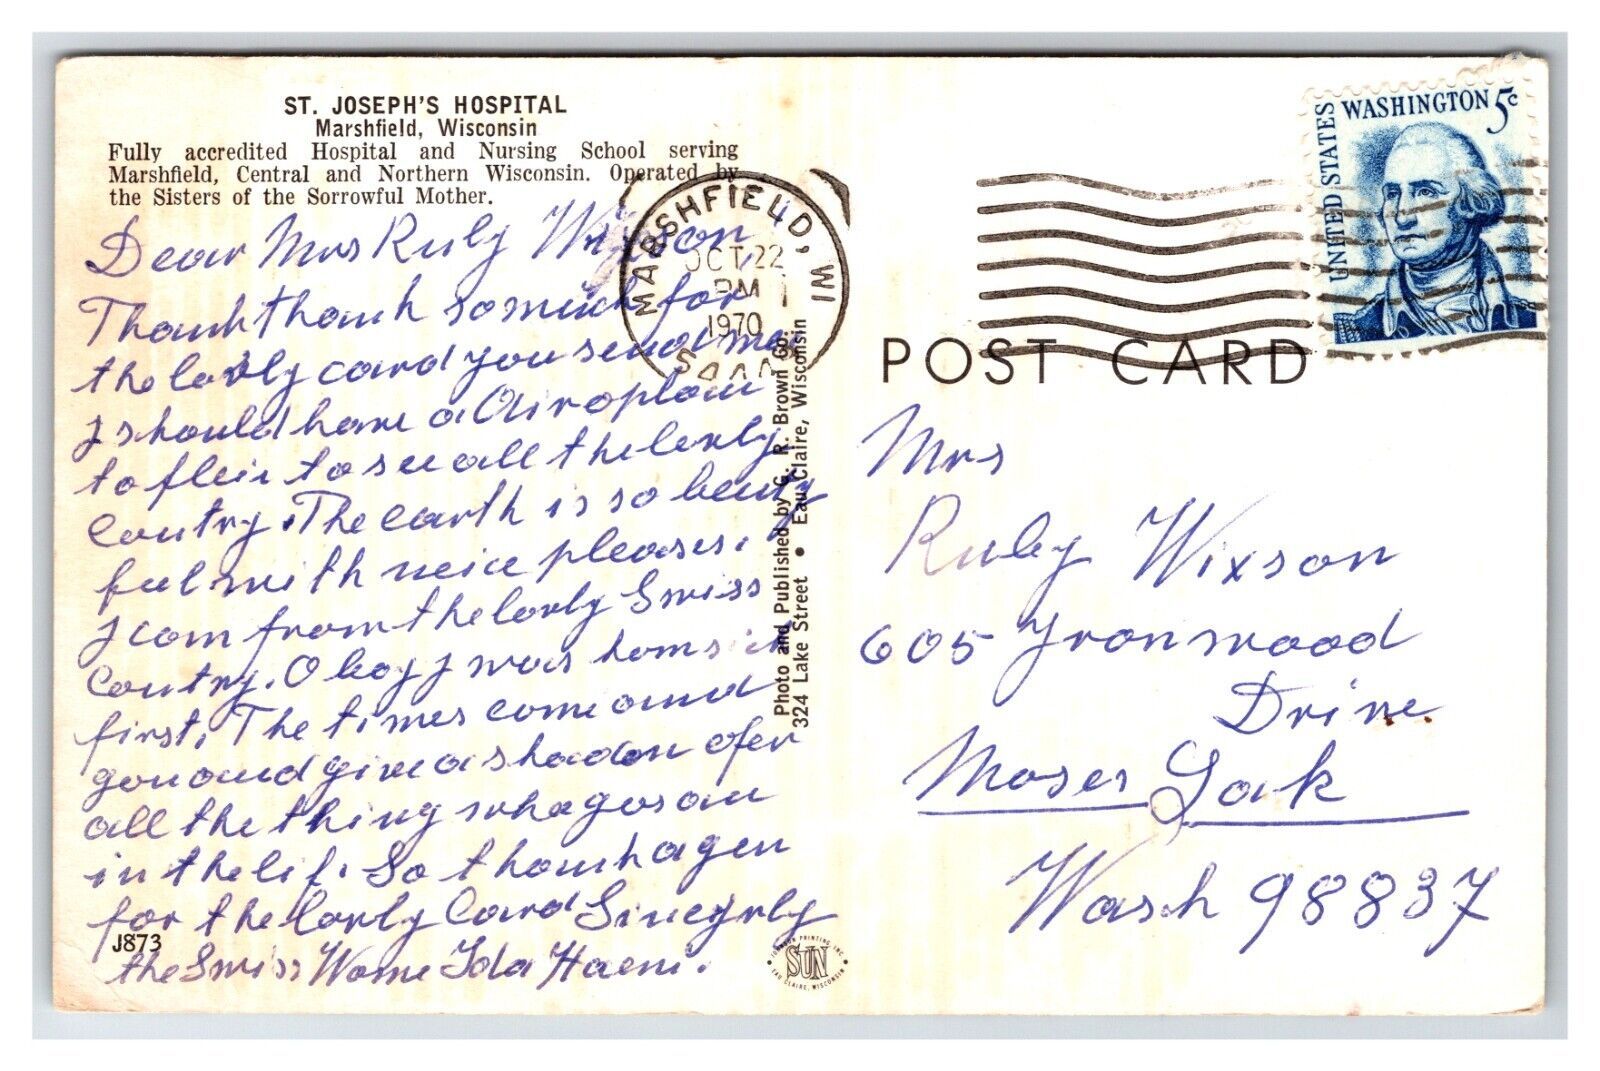 ST. JOSEPH'S HOSPITAL
Marshfield, Wisconsin
Fully accredited Hospital and Nursing School serving
Marshfield, Central and Northern Wisconsin. Operated by
the Sisters of the Sorrowful Mother.
Dear Mrs Ruly Wixson,
Thanh thanh so much for
the lovly card you send me
I should have a Airoplain
to flein to see all the lovly
Coutry. The earth is so beuty
ful with neice pleases.
I com from the lovly Swiss
Coutry. O boy I was homsik
first. The times come and
gou and give a shadow ofer
all the thing wha gos an
in the lif. So thanh agen
for the lovly Card Sincerly
the Swiss Wome Ida Haeni.
J873
MARSHFIELD, WI
OCT 22
PM
1970
Photo and Published by G. R. Brown Co.
324 Lake Street • Eau Claire, Wisconsin
JOHNSON PRINTING INC.
SUN
EAU CLAIRE, WISCONSIN
UNITED STATES
WASHINGTON 5c
POST CARD
Mrs
Ruby Wixson
605 Ironwood
Drive
Moses Lak
Wash 98837